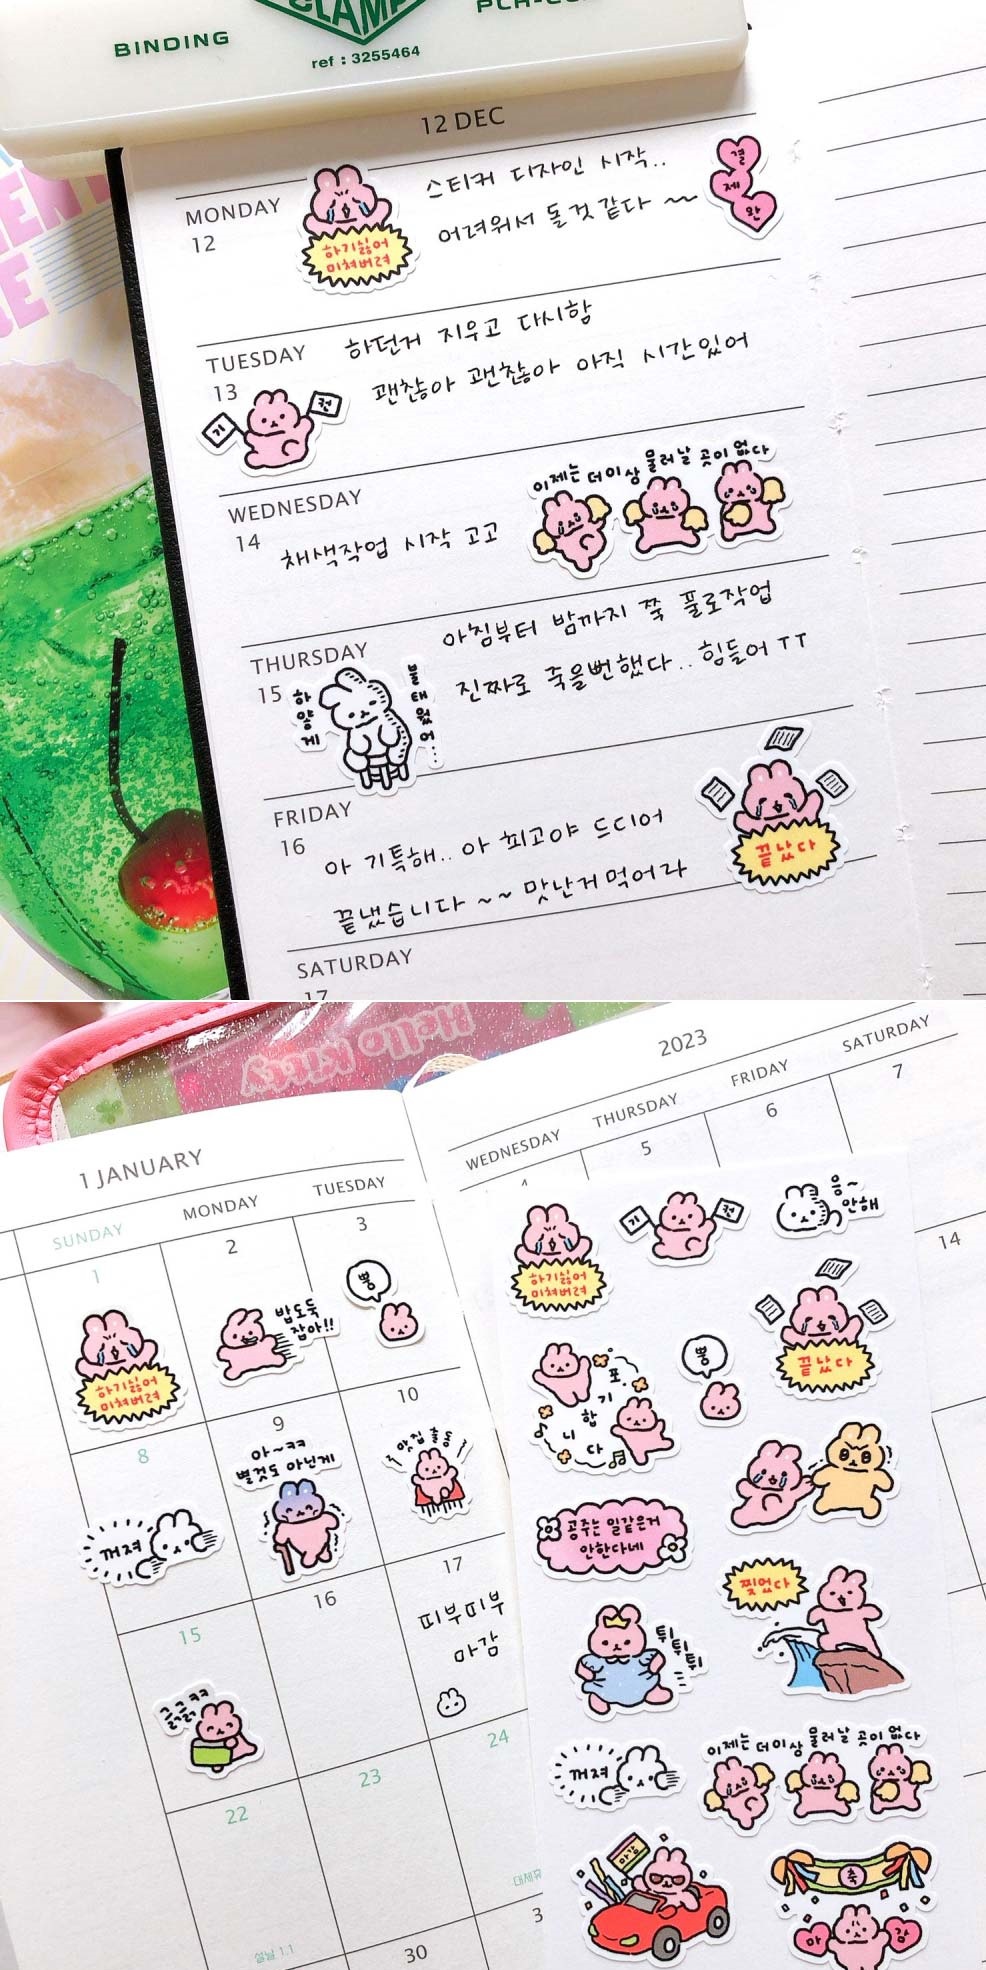 BINDING
CLAMP
ref : 3255464
12 DEC
MONDAY
12
하기싫어
미쳐버려
스티커 디자인 시작..
어려워서 돌것같다 ~~
결
제
완
TUESDAY
13
기
권
하던거 지우고 다시함
괜찮아 괜찮아 아직 시간있어
WEDNESDAY
14
채색작업 시작 고고
이제는 더이상 물러날 곳이 없다
THURSDAY
15
하얗게
불태웠어...
아침부터 밤까지 쭉 풀로작업
진짜로 죽을뻔했다.. 힘들어 TT
FRIDAY
16
아 기특해.. 아 최고야 드디어
끝냈습니다 ~~ 맛난거먹어라
끝났다
SATURDAY
17
Hello Kitty
1 JANUARY
2023
SUNDAY
MONDAY
TUESDAY
WEDNESDAY
THURSDAY
FRIDAY
SATURDAY
1
2
3
4
5
6
7
하기싫어
미쳐버려
밥도둑
잡아!!
뿅
8
9
10
14
꺼져
아~ㅋㅋ
별것도 아닌게
맛집 출동
15
16
17
피부피부
마감
22
23
24
설날 1.1
30
하기싫어
미쳐버려
기
권
응~
안해
포.기
합
니
다
뿅
끝났다
공주는 일같은거
안한다네
찢었다
튀
튀
튀
꺼져
이제는 더이상 물러날 곳이 없다
마감
축
마
감